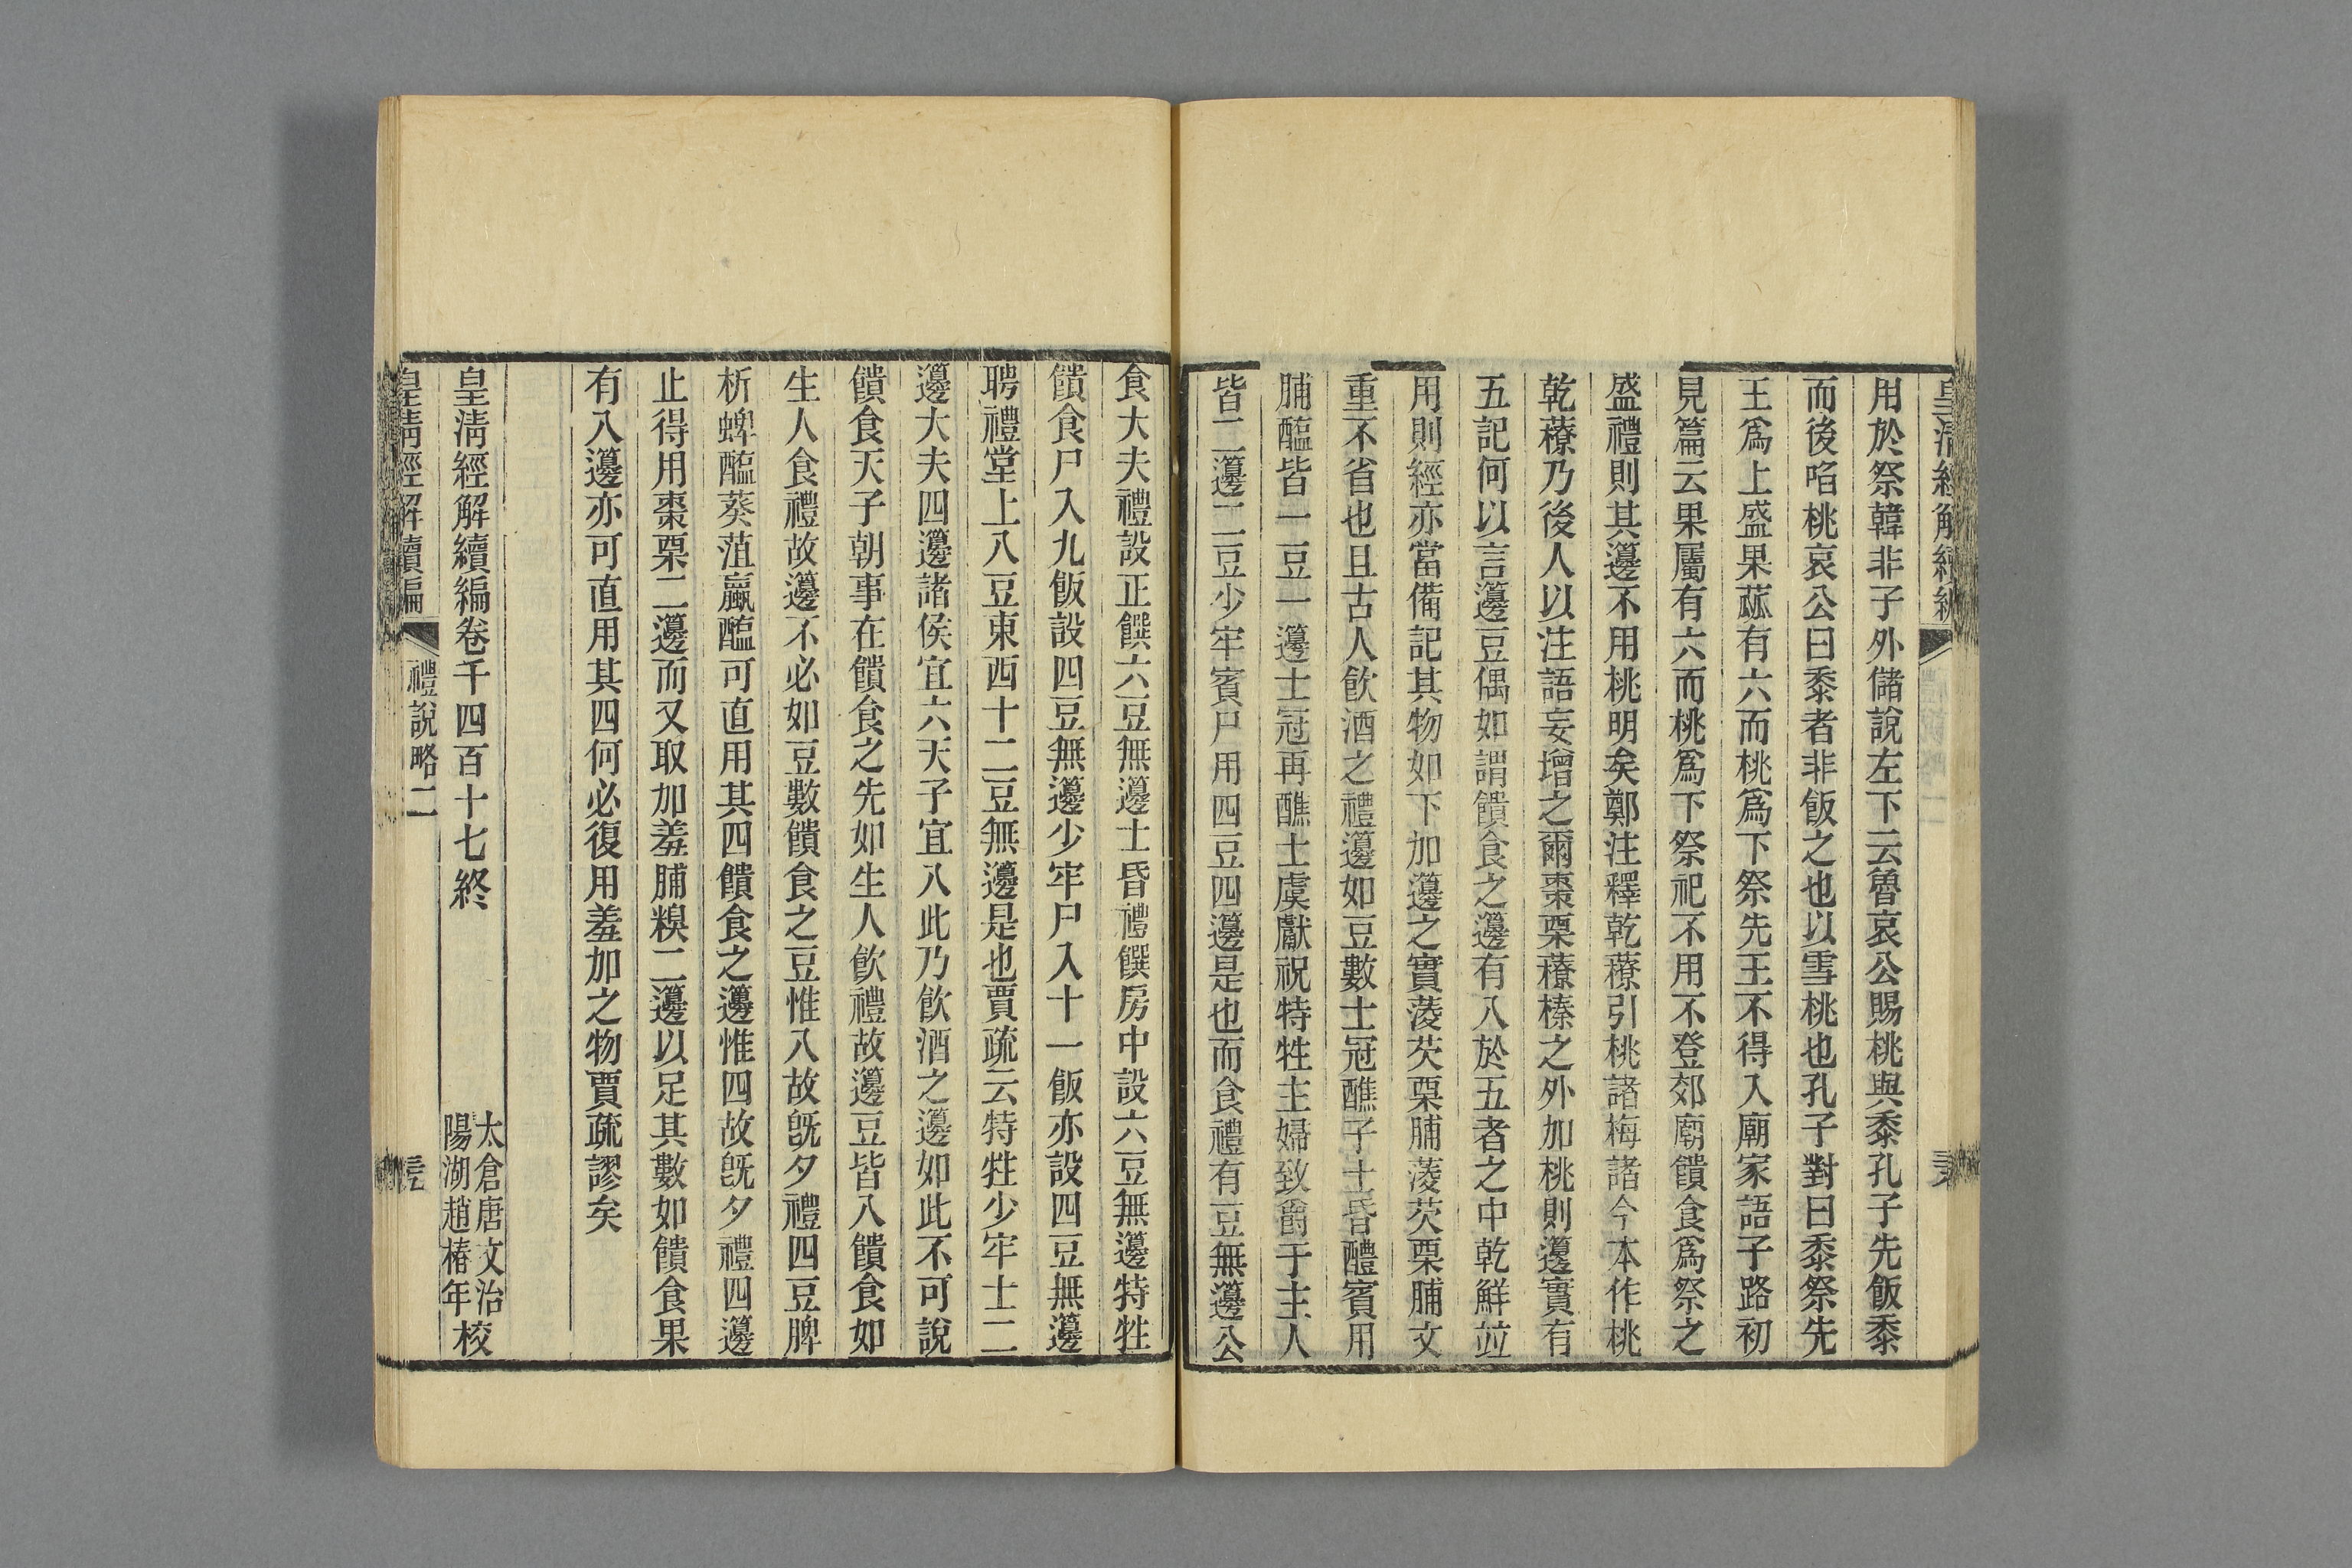 用於祭韓非子外儲說左下云魯哀公賜桃與黍孔子先飯黍
而後啗桃哀公曰黍者非飯之也以雪桃也孔子對曰黍祭先
王爲上盛果蓏有六而桃爲下祭先王不得入廟家語子路初
見篇云果屬有六而桃爲下祭祀不用不登郊廟饋食爲祭之
盛禮則其籩不用桃明矣鄭注釋乾䕩引桃諸梅諸今本作桃
乾䕩乃後人以注語妄增之爾棗栗䕩榛之外加桃則籩實有
五記何以言籩豆偶如謂饋食之籩有八於五者之中乾鮮竝
用則經亦當備記其物如下加籩之實蔆芡栗脯蔆芡栗脯文
重不省也且古人飲酒之禮籩如豆數士冠醮子士昏醴賓用
脯醢皆一豆一籩士冠再醮士虞獻祝特牲主婦致爵于主人
皆二籩二豆少牢賓尸用四豆四籩是也而食禮有豆無籩公
食大夫禮設正饌六豆無籩士昏禮饌房中設六豆無籩特牲
饋食尸入九飯設四豆無籩少牢尸入十一飯亦設四豆無籩
聘禮堂上八豆東西十二豆無籩是也賈疏云特牲少牢士二
籩大夫四籩諸侯宜六天子宜八此乃飲酒之籩如此不可說
饋食天子朝事在饋食之先如生人飲禮故籩豆皆八饋食如
生人食禮故籩不必如豆數饋食之豆惟八故旣夕禮四豆脾
析蜱醢葵菹蠃醢可直用其四饋食之籩惟四故旣夕禮四籩
止得用棗栗二籩而又取加羞脯糗二籩以足其數如饋食果
有八籩亦可直用其四何必復用羞加之物賈疏謬矣
皇淸經解續編卷千四百十七終
太倉唐文治
陽湖趙椿年校
皇淸經解續編
禮說略二